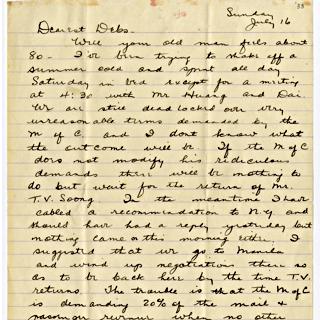 33
Sunday
July 16
Dearest Debs.
Well your old man feels about
80 - I've been trying to shake off a
summer cold and spent all day
Saturday in bed except for a meeting
at 4:30 with Mr Huang and Dai
We are still deadlocked over very
unreasonable terms demanded by the
M of C and I dont know what
the outcome will be. If the M of C
does not modify his rediculous
demands there will be nothing to
do but wait for the return of Mr.
T.V. Soong. In the meantime I have
cabled a recommendation to N.Y. and
should have had a reply yesterday but
nothing came or this morning either. I
suggested that we go to Manila
and wind up negotiations there so
as to be back here by the time T.V.
returns. The trouble is that the M of C
is demanding 20% of the mail &
passenger revenue when no other